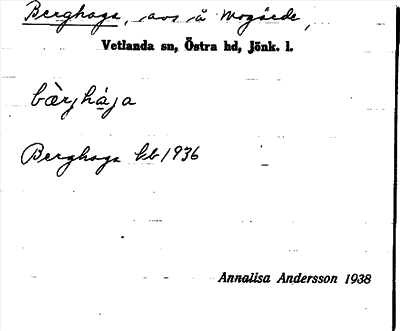 Berghaga, avs å Mogärde,
Vetlanda sn, Östra hd, Jönk. l.
bær̀jhá̱ja
Berghaga kb 1936
Annalisa Andersson 1938